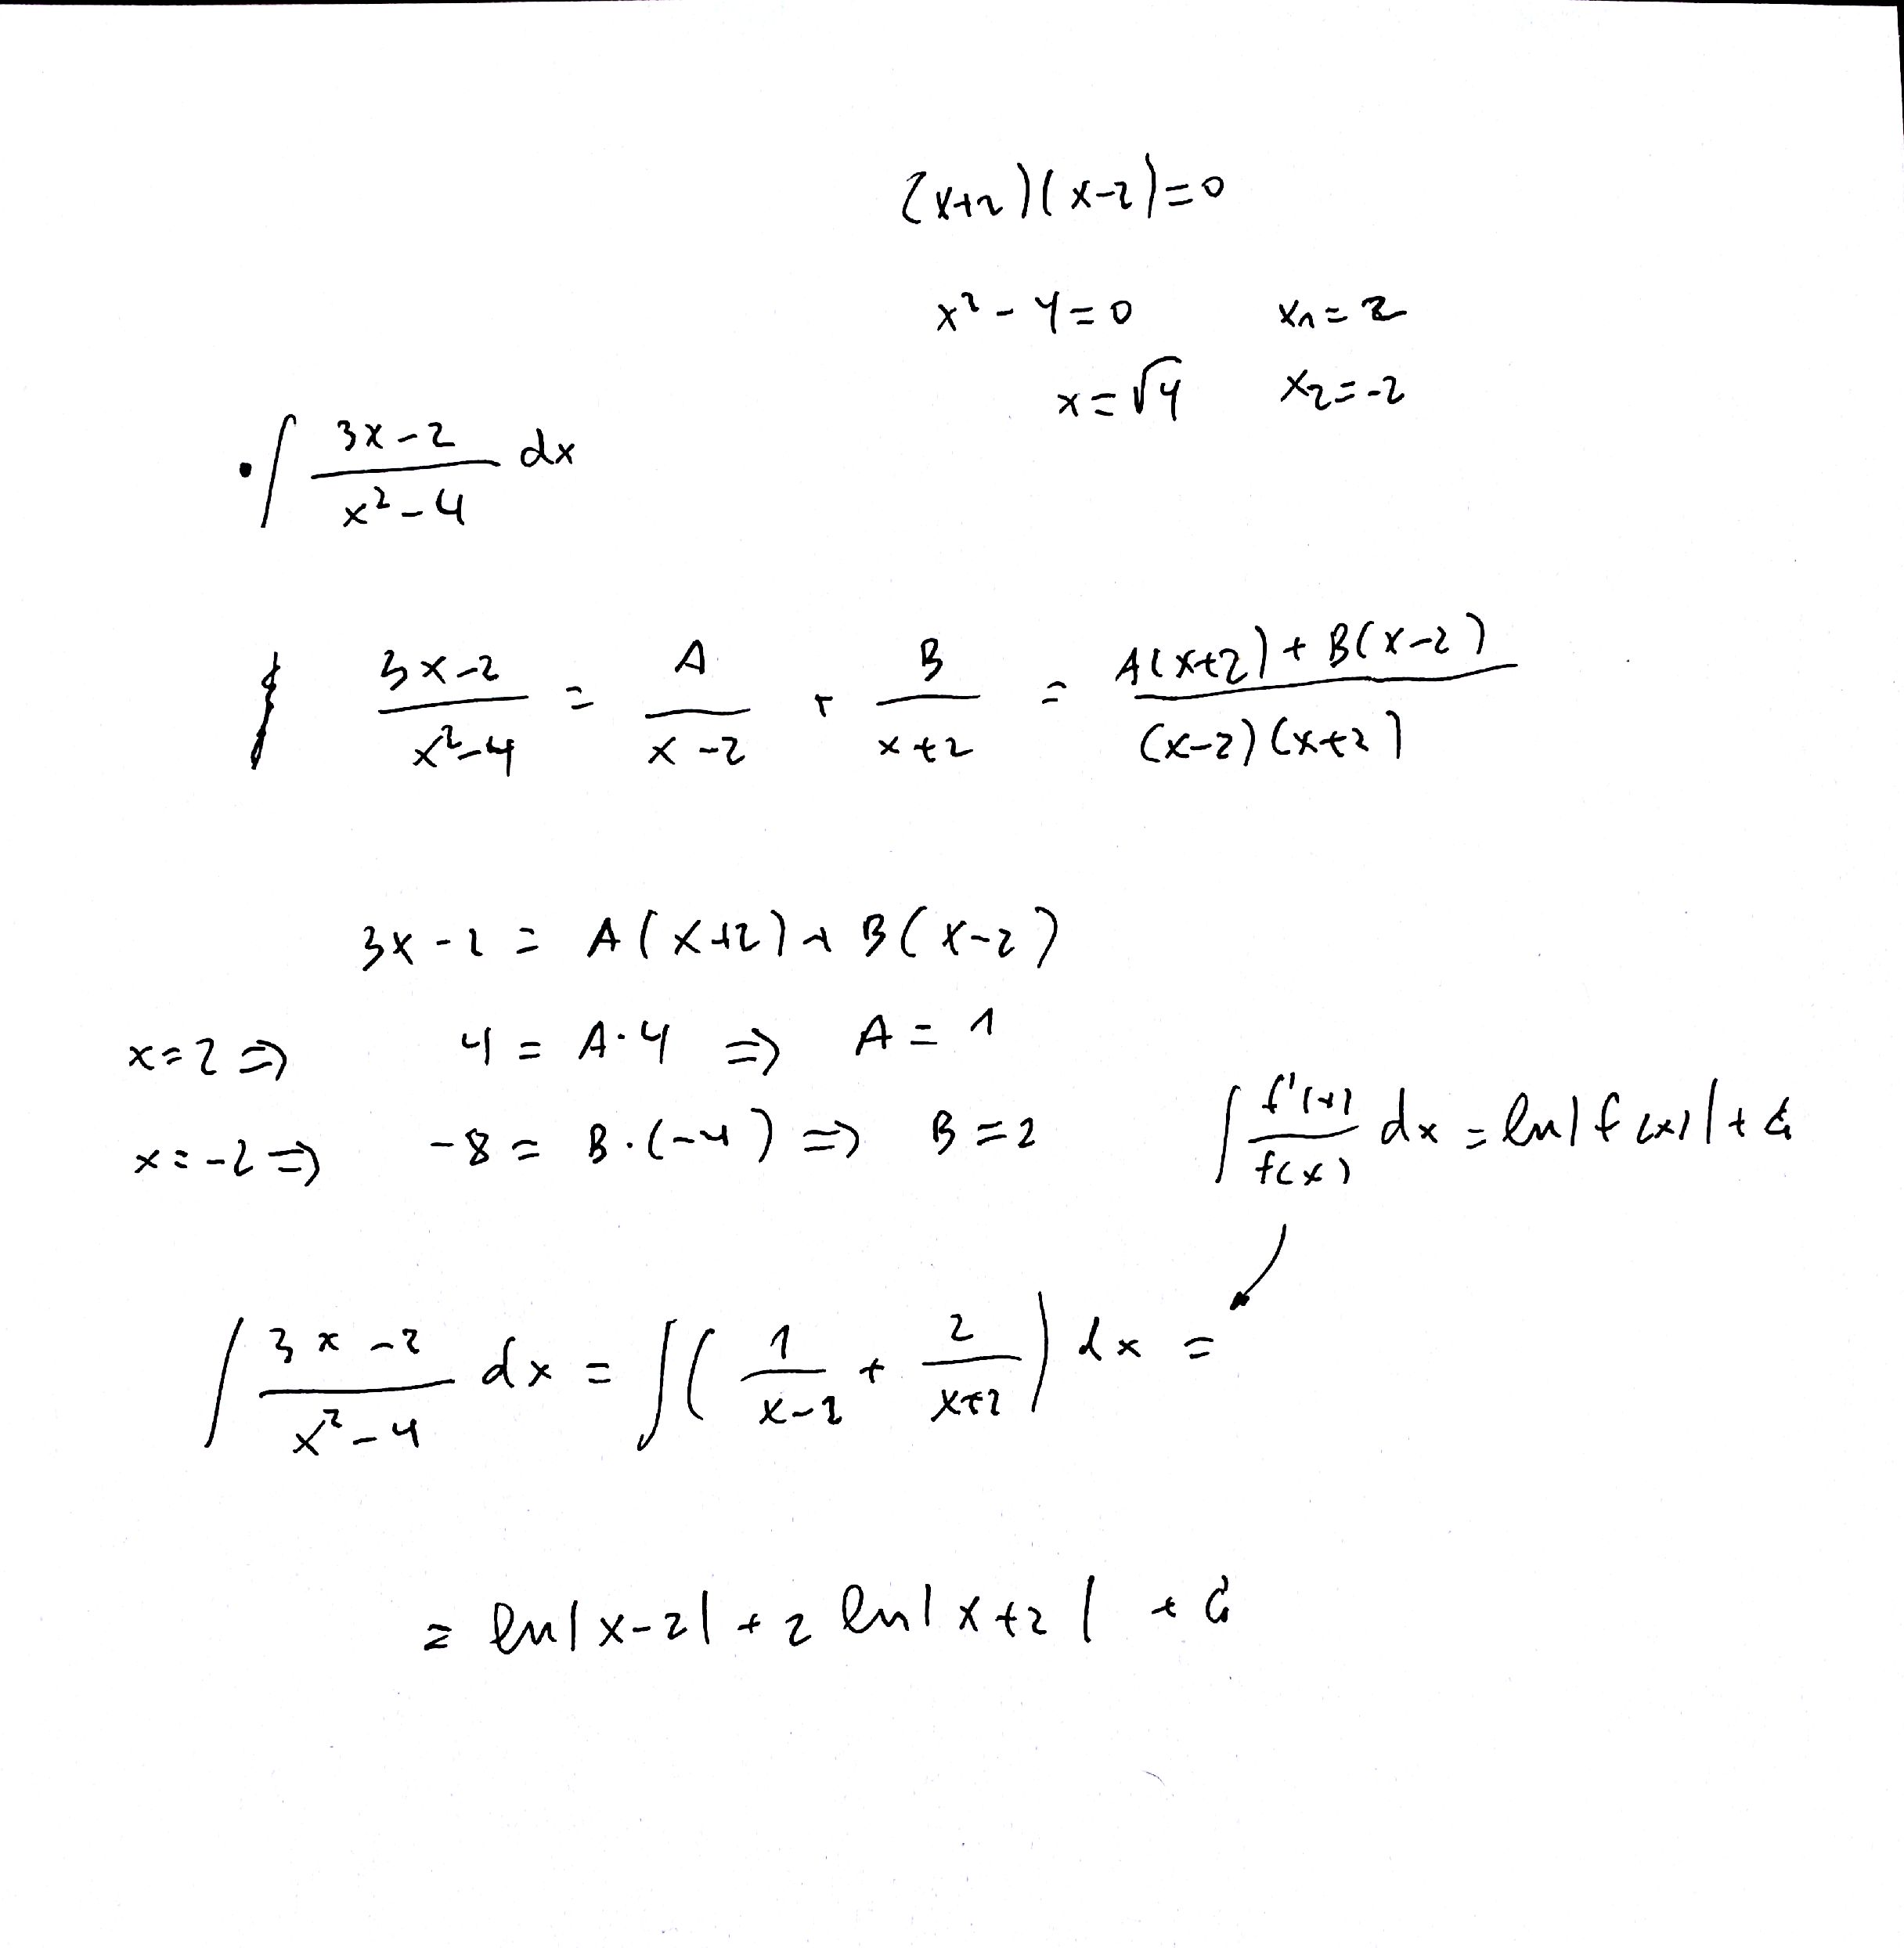 (x+2)(x-2)=0
x² - 4 = 0 x₁ = 2
x = √4 x₂ = -2
• ∫ (3x-2)/(x²-4) dx
(3x-2)/(x²-4) = A/(x-2) + B/(x+2) = (A(x+2) + B(x-2))/((x-2)(x+2))
3x-2 = A(x+2) + B(x-2)
x=2 ⇒ 4 = A·4 ⇒ A = 1
x=-2 ⇒ -8 = B·(-4) ⇒ B = 2
∫ f'(x)/f(x) dx = ln|f(x)| + C
∫ (3x-2)/(x²-4) dx = ∫ (1/(x-2) + 2/(x+2)) dx =
= ln|x-2| + 2 ln|x+2| + C